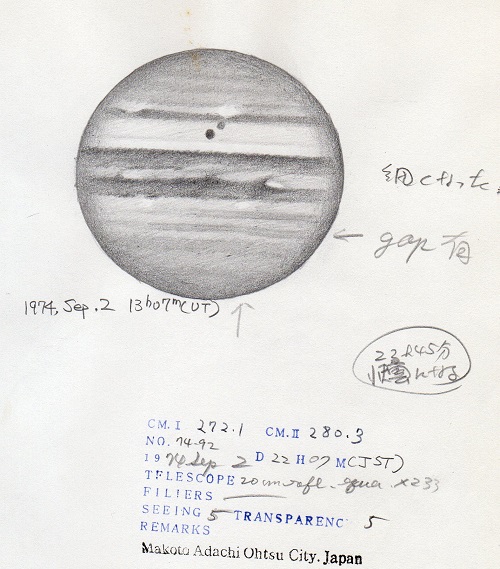 細くなった。
← gap 有
1974, Sep. 2 13h07m(UT)
23h45分
曇になる
CM.I 272.1 CM.II 280.3
NO. 74-92
1974 Sep 2 D 22 H 07 M(JST)
TELESCOPE 20cm refl. equa. ×233
FILIERS ―
SEEING 5 TRANSPARENC 5
REMARKS
Makoto Adachi Ohtsu City. Japan